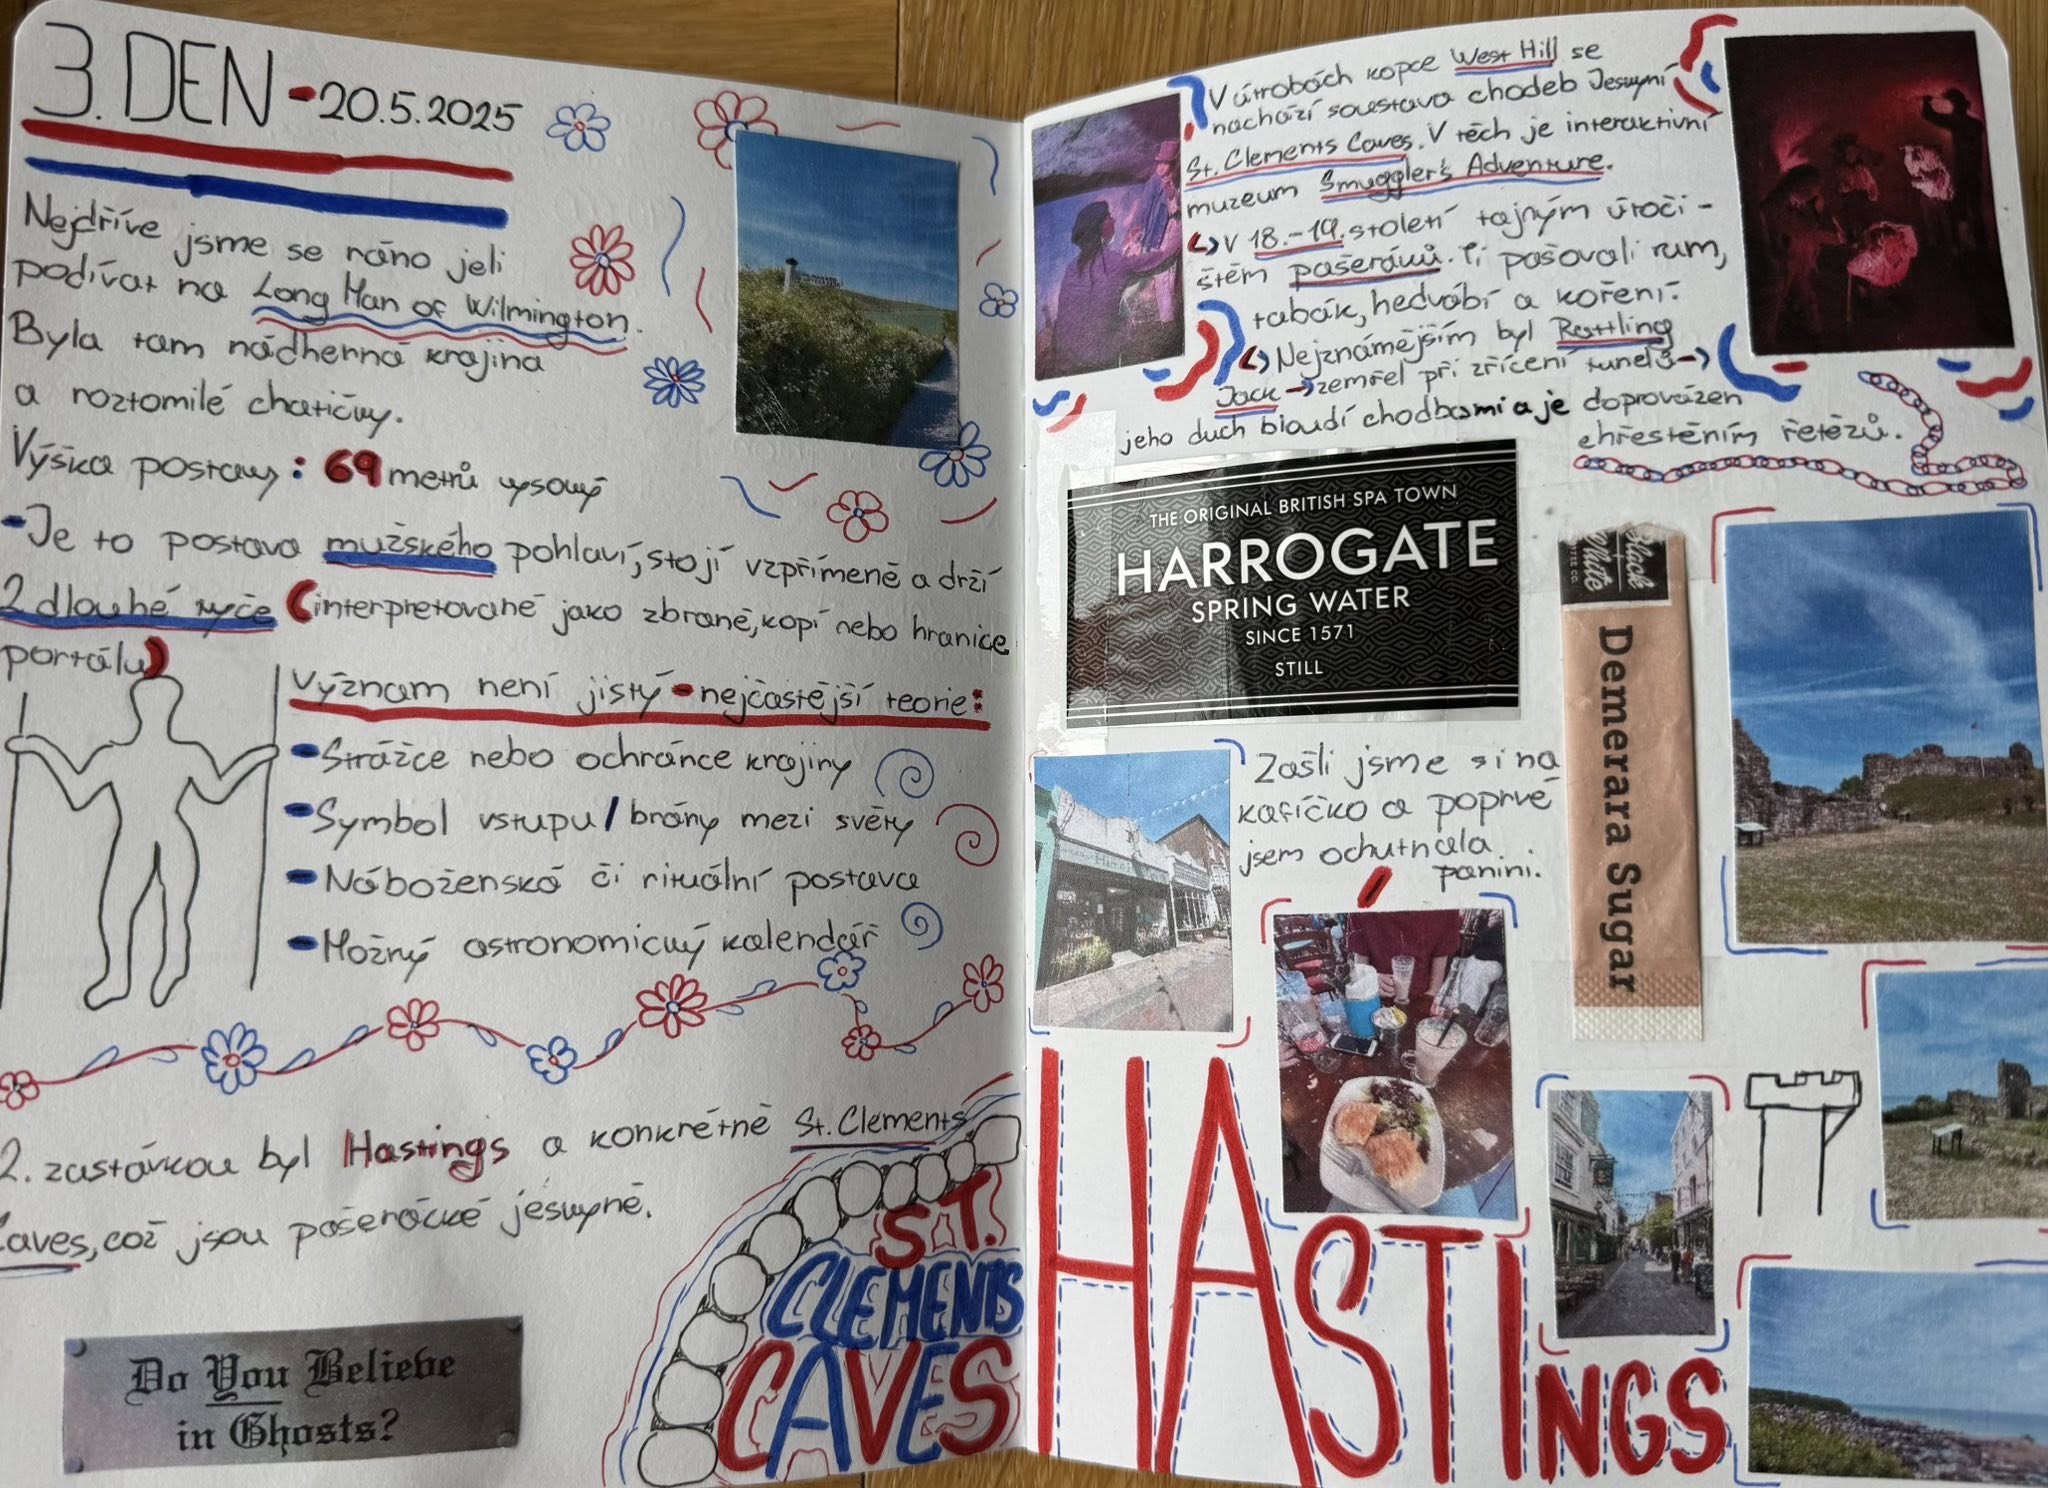 3. DEN - 20.5.2025
Nejdříve jsme se ráno jeli
podívat na Long Man of Wilmington.
Byla tam nádherná krajina
a roztomilé chatičky.
Výška postavy: 69 metrů vysoký
- Je to postava mužského pohlaví, stojí vzpřímeně a drží
2 dlouhé tyče (interpretované jako zbraně, kopí nebo hranice
portálu)
Význam není jistý - nejčastější teorie:
- Strážce nebo ochránce krajiny
- Symbol vstupu / brány mezi světy
- Náboženská či rituální postava
- Možný astronomický kalendář
2. zastávkou byl Hastings a konkrétně St. Clements
Caves, což jsou pašerácké jeskyně.
Do You Believe
in Ghosts?
ST.
CLEMENTS
CAVES
V útrobách kopce West Hill se
nachází soustava chodeb Jeskyní
St. Clements Caves. V těch je interaktivní
muzeum Smuggler's Adventure.
↳ V 18.-19. století tajným útoči-
štěm pašeráků. Ti pašovali rum,
tabák, hedvábí a koření.
↳ Nejznámějším byl Rattling
Jack → zemřel při zřícení tunelů →
jeho duch bloudí chodbami a je doprovázen
chřestěním řetězů.
THE ORIGINAL BRITISH SPA TOWN
HARROGATE
SPRING WATER
SINCE 1571
STILL
Black
White
COFFEE CO.
Demerara Sugar
Zašli jsme si na
kafíčko a poprvé
jsem ochutnala
panini.
HASTINGS